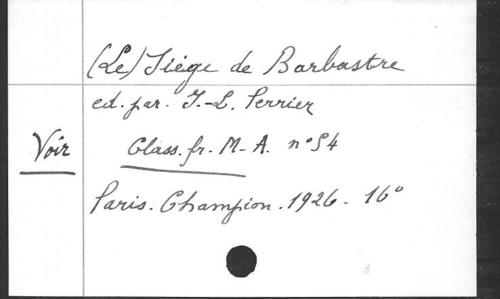 (Le) Siège de Barbastre
ed. par. J.-L. Perrier
Voir Class. fr. M-A. n° 54
Paris. Champion. 1926 - 16°